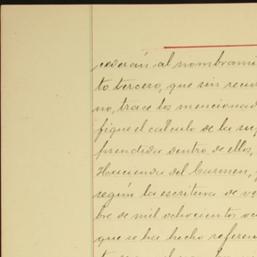 cederán al nombrami
to tercero, que sin recur
no, trace los mencionad
fique el cálculo de la sup
prendida dentro de ellos,
Hacienda del Carmen,
según la escritura de ve
bre de mil ochocientos oc
que se ha hecho referen